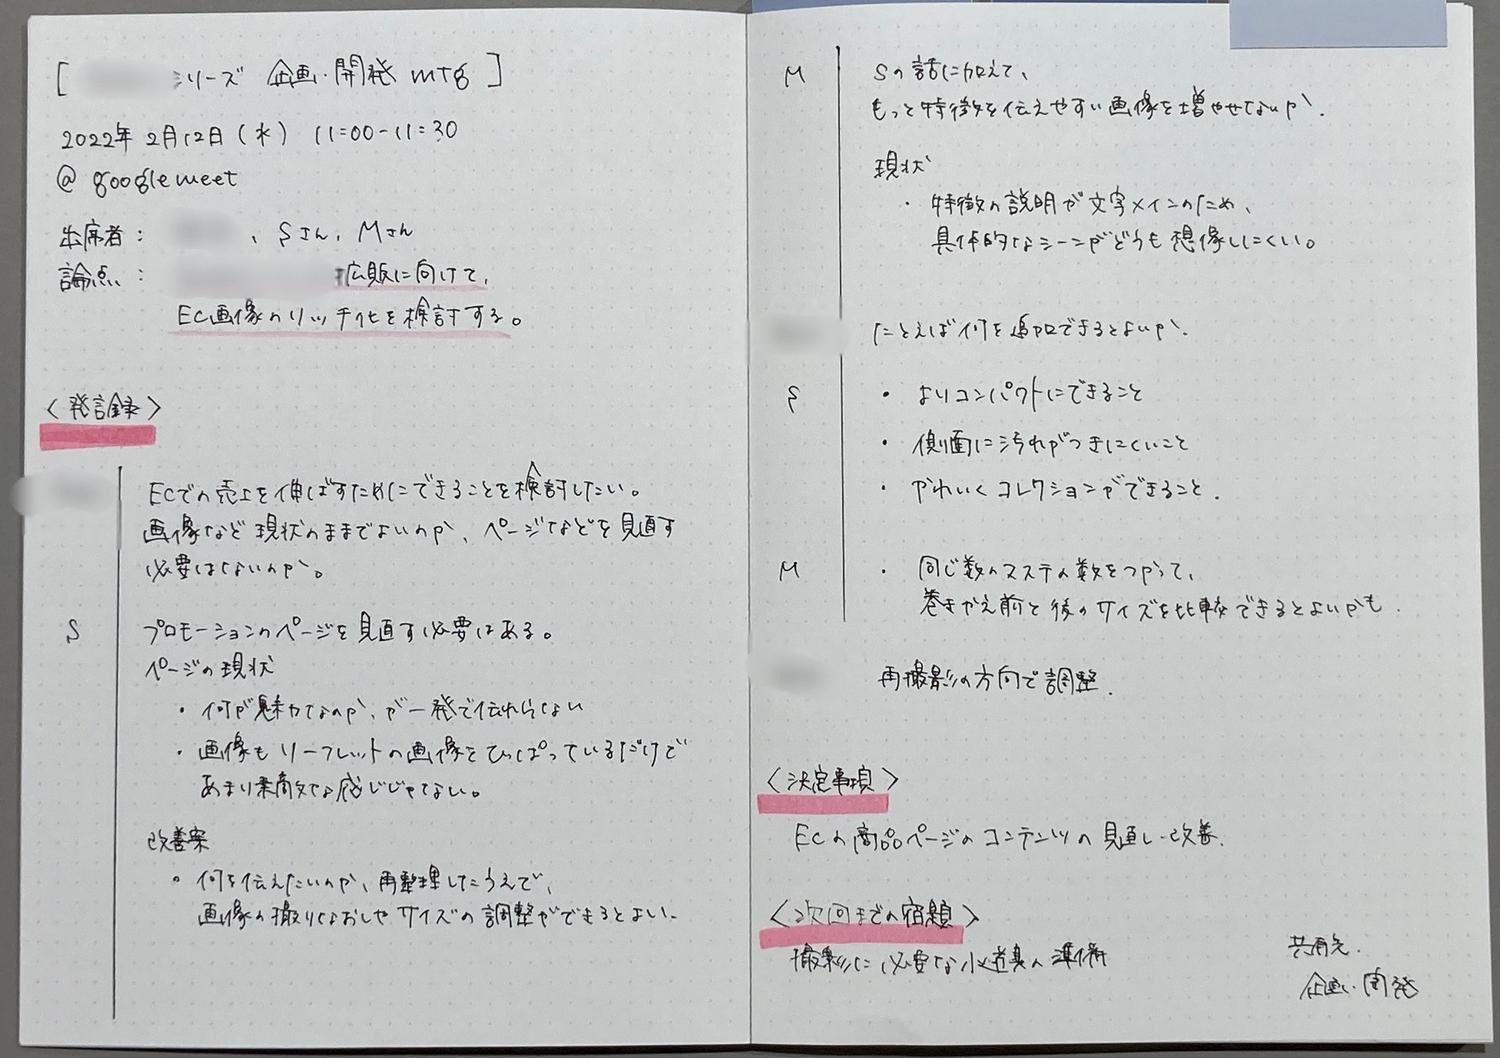 [ シリーズ 企画・開発 mtg ]
2022年2月12日(水) 11:00-11:30
@ google meet
出席者： 、Sさん、Mさん
論点： 広販に向けて、
EC画像のリッチ化を検討する。
〈発言録〉
ECでの売上を伸ばすためにできることを検討したい。
画像など現状のままでよいのか、ページなどを見直す
必要はないのか。
S
プロモーションのページを見直す必要はある。
ページの現状
・何が魅力なのか、が一発で伝わらない
・画像もリーフレットの画像をひっぱっているだけで
あまり素敵な感じじゃない。
改善案
・何を伝えたいのか、再整理したうえで、
画像の撮りなおしやサイズの調整ができるとよい。
M
Sの話に加えて、
もっと特徴を伝えやすい画像を増やせないか。
現状
・特徴の説明が文字メインのため、
具体的なシーンがどうも想像しにくい。
たとえば何を追加できるとよいか。
S
・よりコンパクトにできること
・側面に汚れがつきにくいこと
・かわいくコレクションができること。
M
・同じ数のマステの数をつかって、
巻きかえ前と後のサイズを比較できるとよいかも。
再撮影の方向で調整。
〈決定事項〉
ECの商品ページのコンテンツの見直し・改善。
〈次回までの宿題〉
撮影に必要な小道具の準備
共有先.
企画・開発